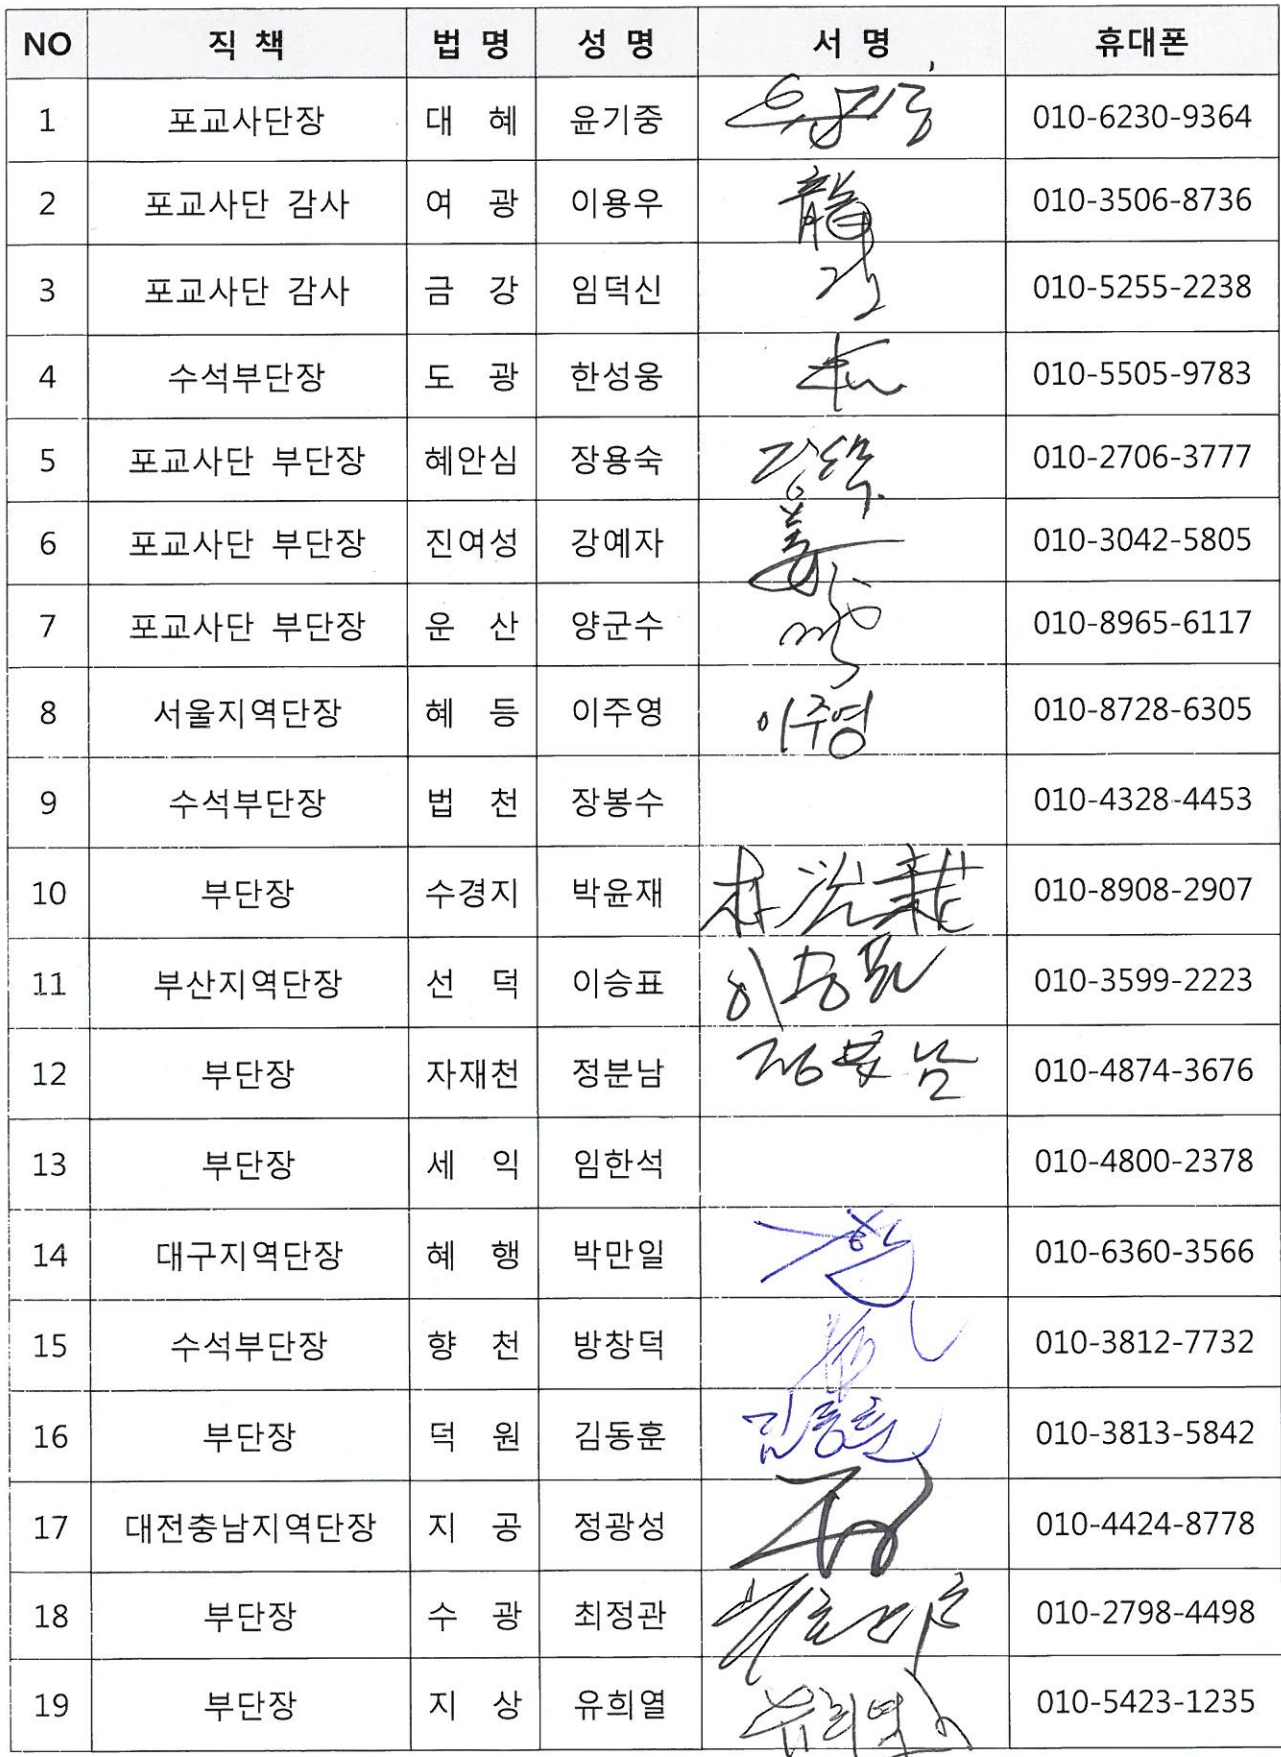 NO 직 책 법 명 성 명 서 명 휴대폰
1 포교사단장 대 혜 윤기중 010-6230-9364
2 포교사단 감사 여 광 이용우 龍 010-3506-8736
3 포교사단 감사 금 강 임덕신 010-5255-2238
4 수석부단장 도 광 한성웅 010-5505-9783
5 포교사단 부단장 혜안심 장용숙 010-2706-3777
6 포교사단 부단장 진여성 강예자 姜 010-3042-5805
7 포교사단 부단장 운 산 양군수 010-8965-6117
8 서울지역단장 혜 등 이주영 이주영 010-8728-6305
9 수석부단장 법 천 장봉수 010-4328-4453
10 부단장 수경지 박윤재 010-8908-2907
11 부산지역단장 선 덕 이승표 이승표 010-3599-2223
12 부단장 자재천 정분남 정분남 010-4874-3676
13 부단장 세 익 임한석 010-4800-2378
14 대구지역단장 혜 행 박만일 010-6360-3566
15 수석부단장 향 천 방창덕 010-3812-7732
16 부단장 덕 원 김동훈 김동훈 010-3813-5842
17 대전충남지역단장 지 공 정광성 010-4424-8778
18 부단장 수 광 최정관 010-2798-4498
19 부단장 지 상 유희열 유희열 010-5423-1235